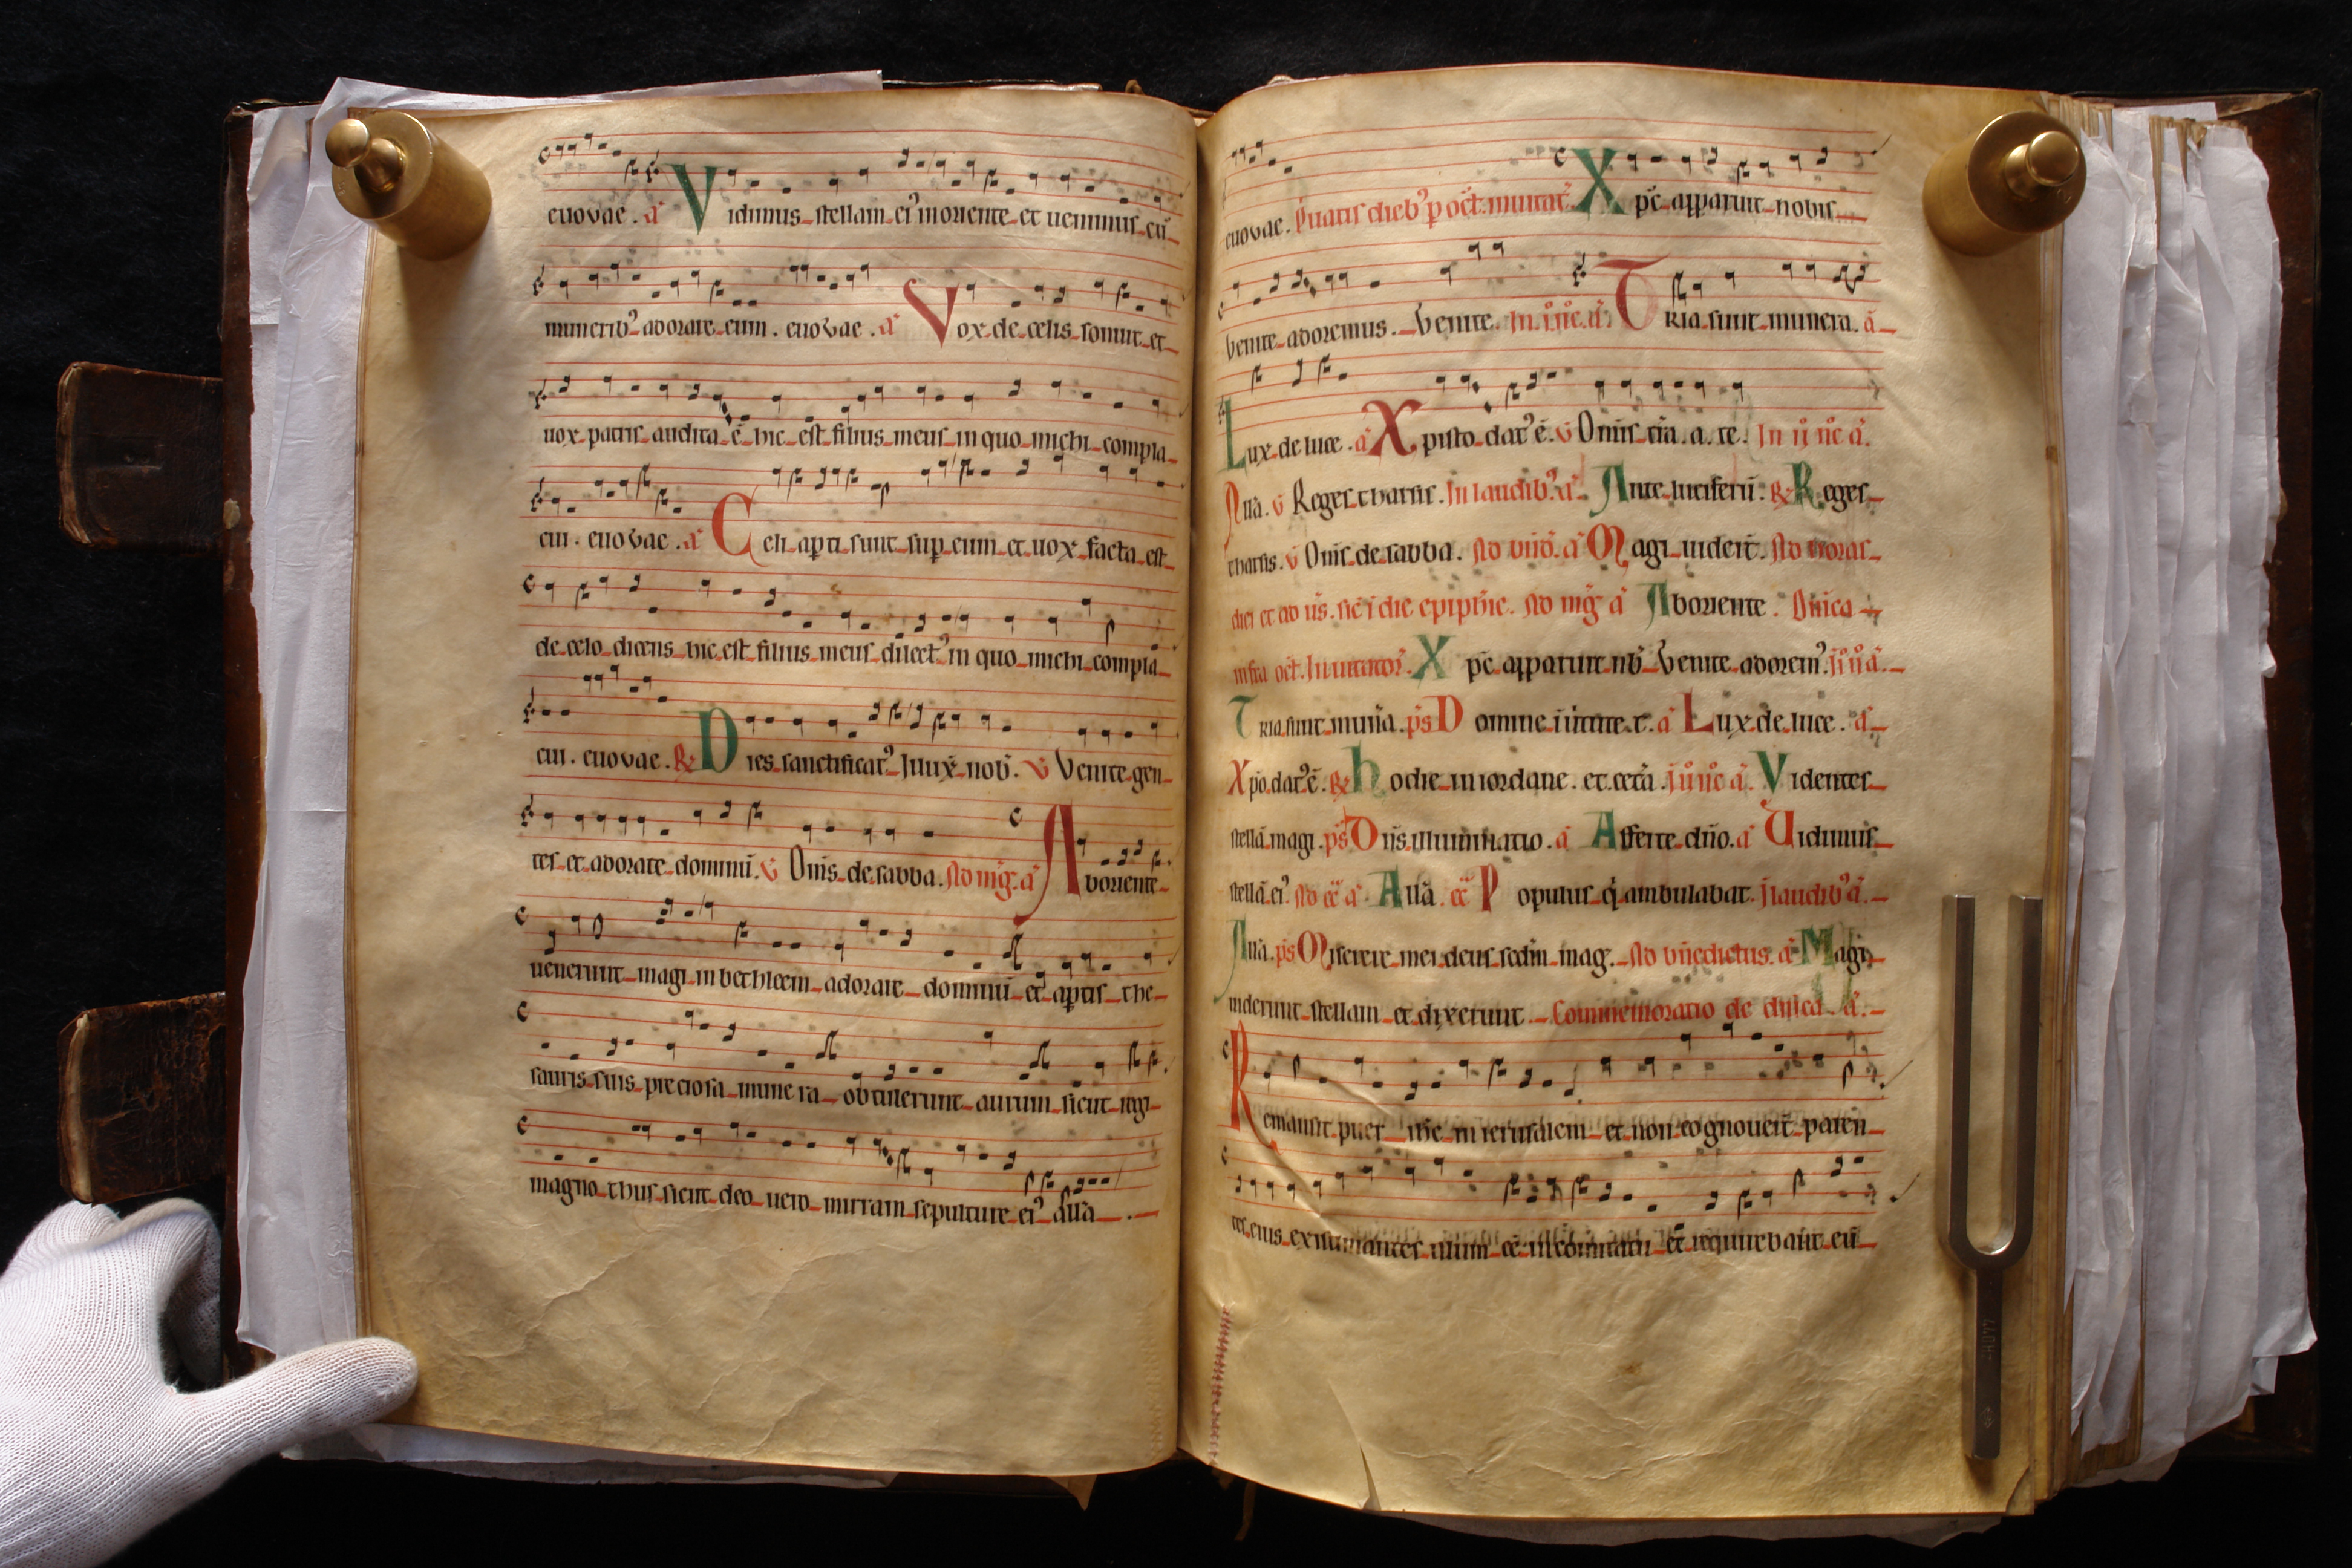 euovae. a Vidimus stellam ei' in oriente et uenimus cū
munerib' adorare eum. euovae. a Vox de celis sonuit et
uox patris audita ē hic est filius meus in quo michi compla
cui. euovae. a Celi apti sunt sup eum et uox facta est
de celo dicens hic est filius meus dilect' in quo michi compla
cui. euovae. ℟ Dies sanctificat' illux nob. v Venite gen
tes et adorate dominū. v Om̄s de sabba. Ad mḡ. a Ab oriente
uenerunt magi in bethleem adorare dominū et aptis the
sauris suis preciosa munera obtulerunt aurum sicut regi
magno thus sicut deo uero mirram sepulture ei' allā
euovae. Priuatis dieb' p oct. inuitat. Xpc apparuit nobis
Venite adoremus. Venite. In i noc. a Tria sunt munera. a
Lux de luce. a Xpisto dat' ē. v Om̄is t̄ra. a. te. In ii noc a.
Allā. v Reges tharsis. In laudib' a. Ante luciferū. ℟ Reges
tharsis. v Om̄s de sabba. Ad bn̄d. a Magi uider̄t. Ad horas
diei et ad us̄. sic ī die epiph̄ie. Ad mḡ a Ab oriente. Dn̄ica
infra oct. Inuitator. Xpc apparuit nb̄ Venite adorem' .
Tria sunt mun̄a. ps Domine . a Lux de luce. a
Xpo dat' ē. ℟ hodie in iordane. et cetā . a. Videntes
stellā magi. ps Dn̄s illuminatio. a Afferte dn̄o. a Uidimus
stellā ei'. Ad a Allā. Populus q̄ ambulabat. ī laudib' a.
Allā. ps Miserere mei deus sedm̄ mag. Ad bn̄edictus. a Magi
uiderunt stellam et dixerunt. Commemoratio de dn̄ica a.
Remansit puer ih̄c in ierusalem et non cognouer̄t paren
tes eius existimantes illum ee in comitatu et requirebant eū